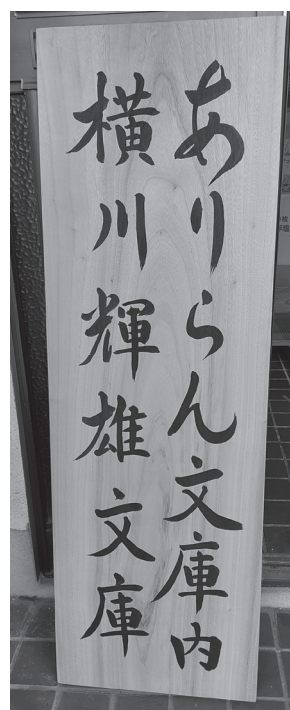 ありらん文庫内
横川輝雄文庫